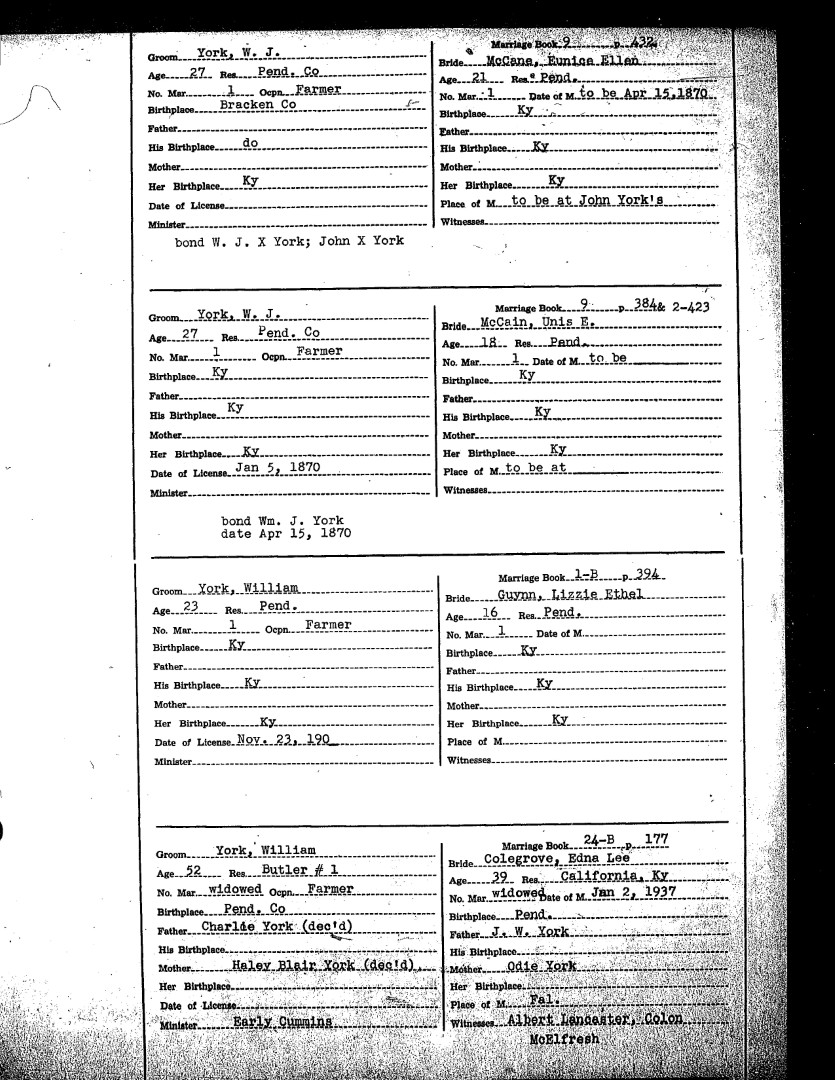 Groom York, W. J.
Age 27 Res. Pend. Co
No. Mar. 1 Ocpn. Farmer
Birthplace Bracken Co
Father
His Birthplace do
Mother
Her Birthplace Ky
Date of License
Minister
bond W. J. X York; John X York
Marriage Book 9 p. 432
Bride McCane, Eunice Ellen
Age 21 Res. Pend.
No. Mar. 1 Date of M. to be Apr 15, 1870
Birthplace Ky
Father
His Birthplace Ky
Mother
Her Birthplace Ky
Place of M. to be at John York's
Witnesses
Groom York, W. J.
Age 27 Res. Pend. Co
No. Mar. 1 Ocpn. Farmer
Birthplace Ky
Father
His Birthplace Ky
Mother
Her Birthplace Ky
Date of License Jan 5, 1870
Minister
bond Wm. J. York
date Apr 15, 1870
Marriage Book 9 p. 384& 2-423
Bride McCain, Unis E.
Age 18 Res. Pend.
No. Mar. 1 Date of M. to be
Birthplace Ky
Father
His Birthplace Ky
Mother
Her Birthplace Ky
Place of M. to be at
Witnesses
Groom York, William
Age 23 Res. Pend.
No. Mar. 1 Ocpn. Farmer
Birthplace Ky
Father
His Birthplace Ky
Mother
Her Birthplace Ky
Date of License Nov. 23, 190_
Minister
Marriage Book 1-B p. 394
Bride Guynn, Lizzie Ethel
Age 16 Res. Pend.
No. Mar. 1 Date of M.
Birthplace Ky
Father
His Birthplace Ky
Mother
Her Birthplace Ky
Place of M.
Witnesses
Groom York, William
Age 52 Res. Butler # 1
No. Mar. widowed Ocpn. Farmer
Birthplace Pend. Co
Father Charlie York (dec'd)
His Birthplace
Mother Haley Blair York (dec'd)
Her Birthplace
Date of License
Minister Early Cummins
Marriage Book 24-B p. 177
Bride Colegrove, Edna Lee
Age 39 Res. California, Ky
No. Mar. widowed Date of M. Jan 2, 1937
Birthplace Pend.
Father J. W. York
His Birthplace
Mother Odie York
Her Birthplace
Place of M. Fal.
Witnesses Albert Lancaster, Colon
McElfresh